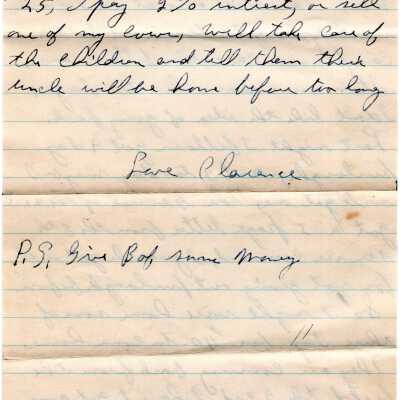 25, I pay 2% intrest, or sell
one of my cows, will take care of
the children and tell them their
uncle will be home before too long
Love Clarence
P.S. Give Bob some money
11